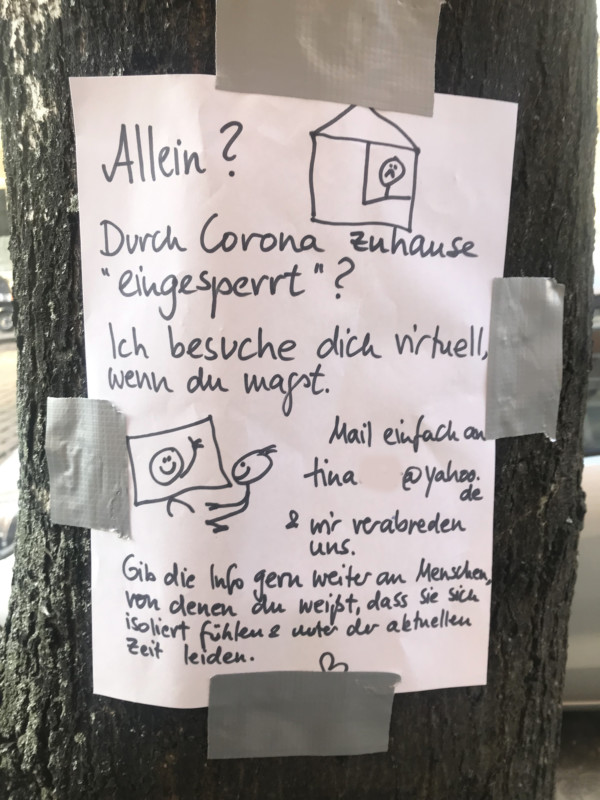 Allein?
Durch Corona zuhause
"eingesperrt"?
Ich besuche dich virtuell,
wenn du magst.
Mail einfach an
tina @yahoo.
de
& wir verabreden
uns.
Gib die Info gern weiter an Menschen,
von denen du weißt, dass sie sich
isoliert fühlen & unter der aktuellen
Zeit leiden.